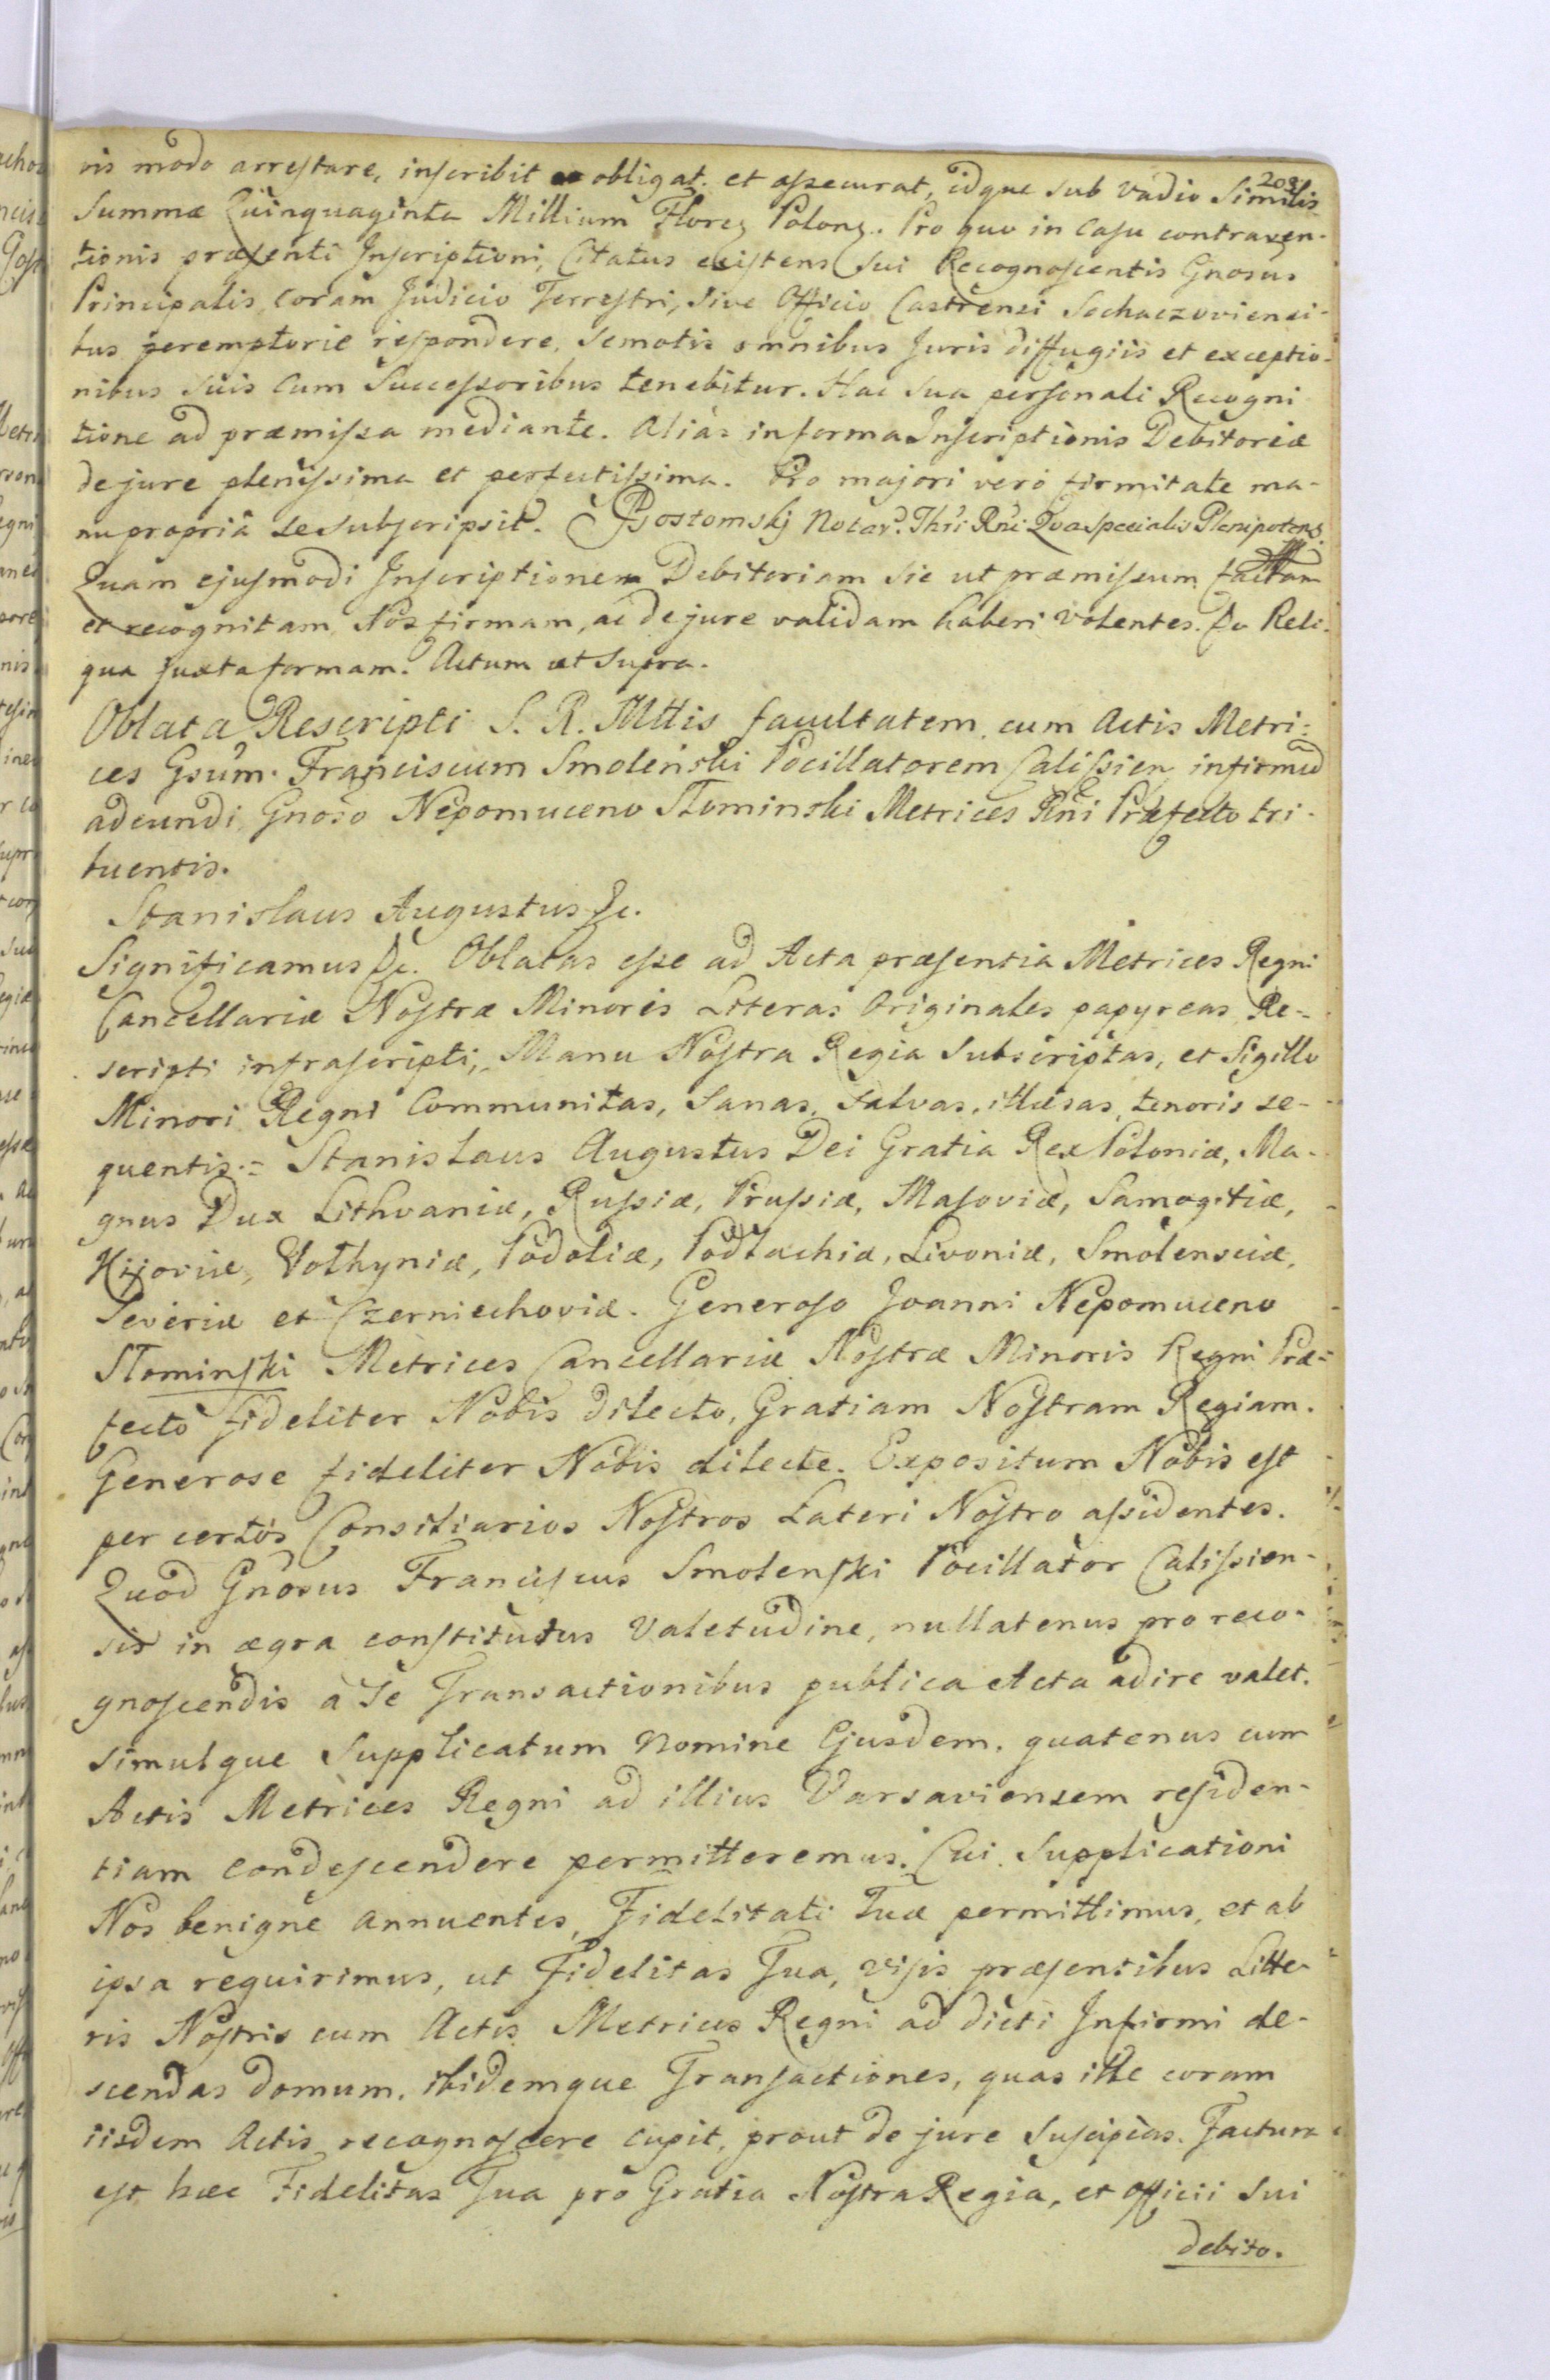 203
vis modo arrestare, inscribit obligat et assecurat, idque sub vadio Similis
Summæ Quinquaginta Millium Floren Polon. Pro quo in Casu contraven-
tionis præsenti Inscriptioni, Citatus existens Sui Recognoscentis Gnosus
Principalis, Coram Judicio Terrestri, Sive Officio Castrensi Sochaczoviensi-
bus peremptorie respondere, Semotis omnibus Juris diffugiis et exceptio-
nibus Suis Cum Successoribus tenebitur. Hac Sua personali Recogni
tione ad præmissa mediante. Aliàs in forma Inscriptionis Debitoriæ
de jure plenissima et perfectissima. Pro majori verò firmitate ma-
nu propriâ se subscripsit. Rostomskj Notar. Thri Rni Qua specialis Plenipotens.
Quam ejusmodi Inscriptionem Debitoriam Sic ut præmissum factam
et recognitam, Nos firmam, ac de jure validam haberi Volentes. &c Reli-
qua juxta formam. Actum ut Supra.
Oblata Rescripti S. R. Mttis facultatem, cum Actis Metri-
ces Gsum Franciscum Smolenski Pocillatorem Calissien infirmum
adeundi, Gnoso Nepomuceno Słominski Metrices Rni Præfecto tri-
buentis.
Stanislaus Augustus &c.
Significamus &c. Oblatas esse ad Acta præsentia Metrices Regni
Cancellariæ Nostræ Minoris Literas Originales papyreas Re-
scripti infrascripti, Manu Nostra Regia Subscriptas, et Sigillo
Minori Regni Communitas, Sanas, Salvas, illæsas, tenoris se-
quentis.= Stanislaus Augustus Dei Gratia Rex Poloniæ, Ma-
gnus Dux Lithvaniæ, Russiæ, Prussiæ, Masoviæ, Samogitiæ,
Kijoviæ, Volhyniæ, Podoliæ, Podlachiæ, Livoniæ, Smolensciæ,
Severiæ et Czerniechoviæ. Generoso Joanni Nepomuceno
Słominski Metrices Cancellariæ Nostræ Minoris Regni Præ-
fecto fideliter Nobis dilecto, Gratiam Nostram Regiam.
Generose fideliter Nobis dilecte. Expositum Nobis est
per certos Consiliarios Nostros Lateri Nostro assidentes.
Quod Gnosus Franciscus Smolenski Pocillator Calissien-
sis in ægra constitutus Valetudine, nullatenus pro reco-
gnoscendis à Se Transactionibus publica Acta adire valet.
simulque Supplicatum Nomine Ejusdem, quatenus cum
Actis Metrices Regni ad illius Varsaviensem residen-
tiam condescendere permitteremus. Cui Supplicationi
Nos benigne annuentes, Fidelitati Tuæ permittimus, et ab
ipsa requirimus, ut Fidelitas Tua, visis præsentibus Litte-
ris Nostris cum Actis Metrices Regni ad dicti Infirmi de-
scendas domum, ibidemque Transactiones, quas ille coram
iisdem Actis recognoscere cupit, prout de jure Suscipias. Factura
est hæc Fidelitas Tua pro Gratia Nostra Regia, et officii Sui
debito.